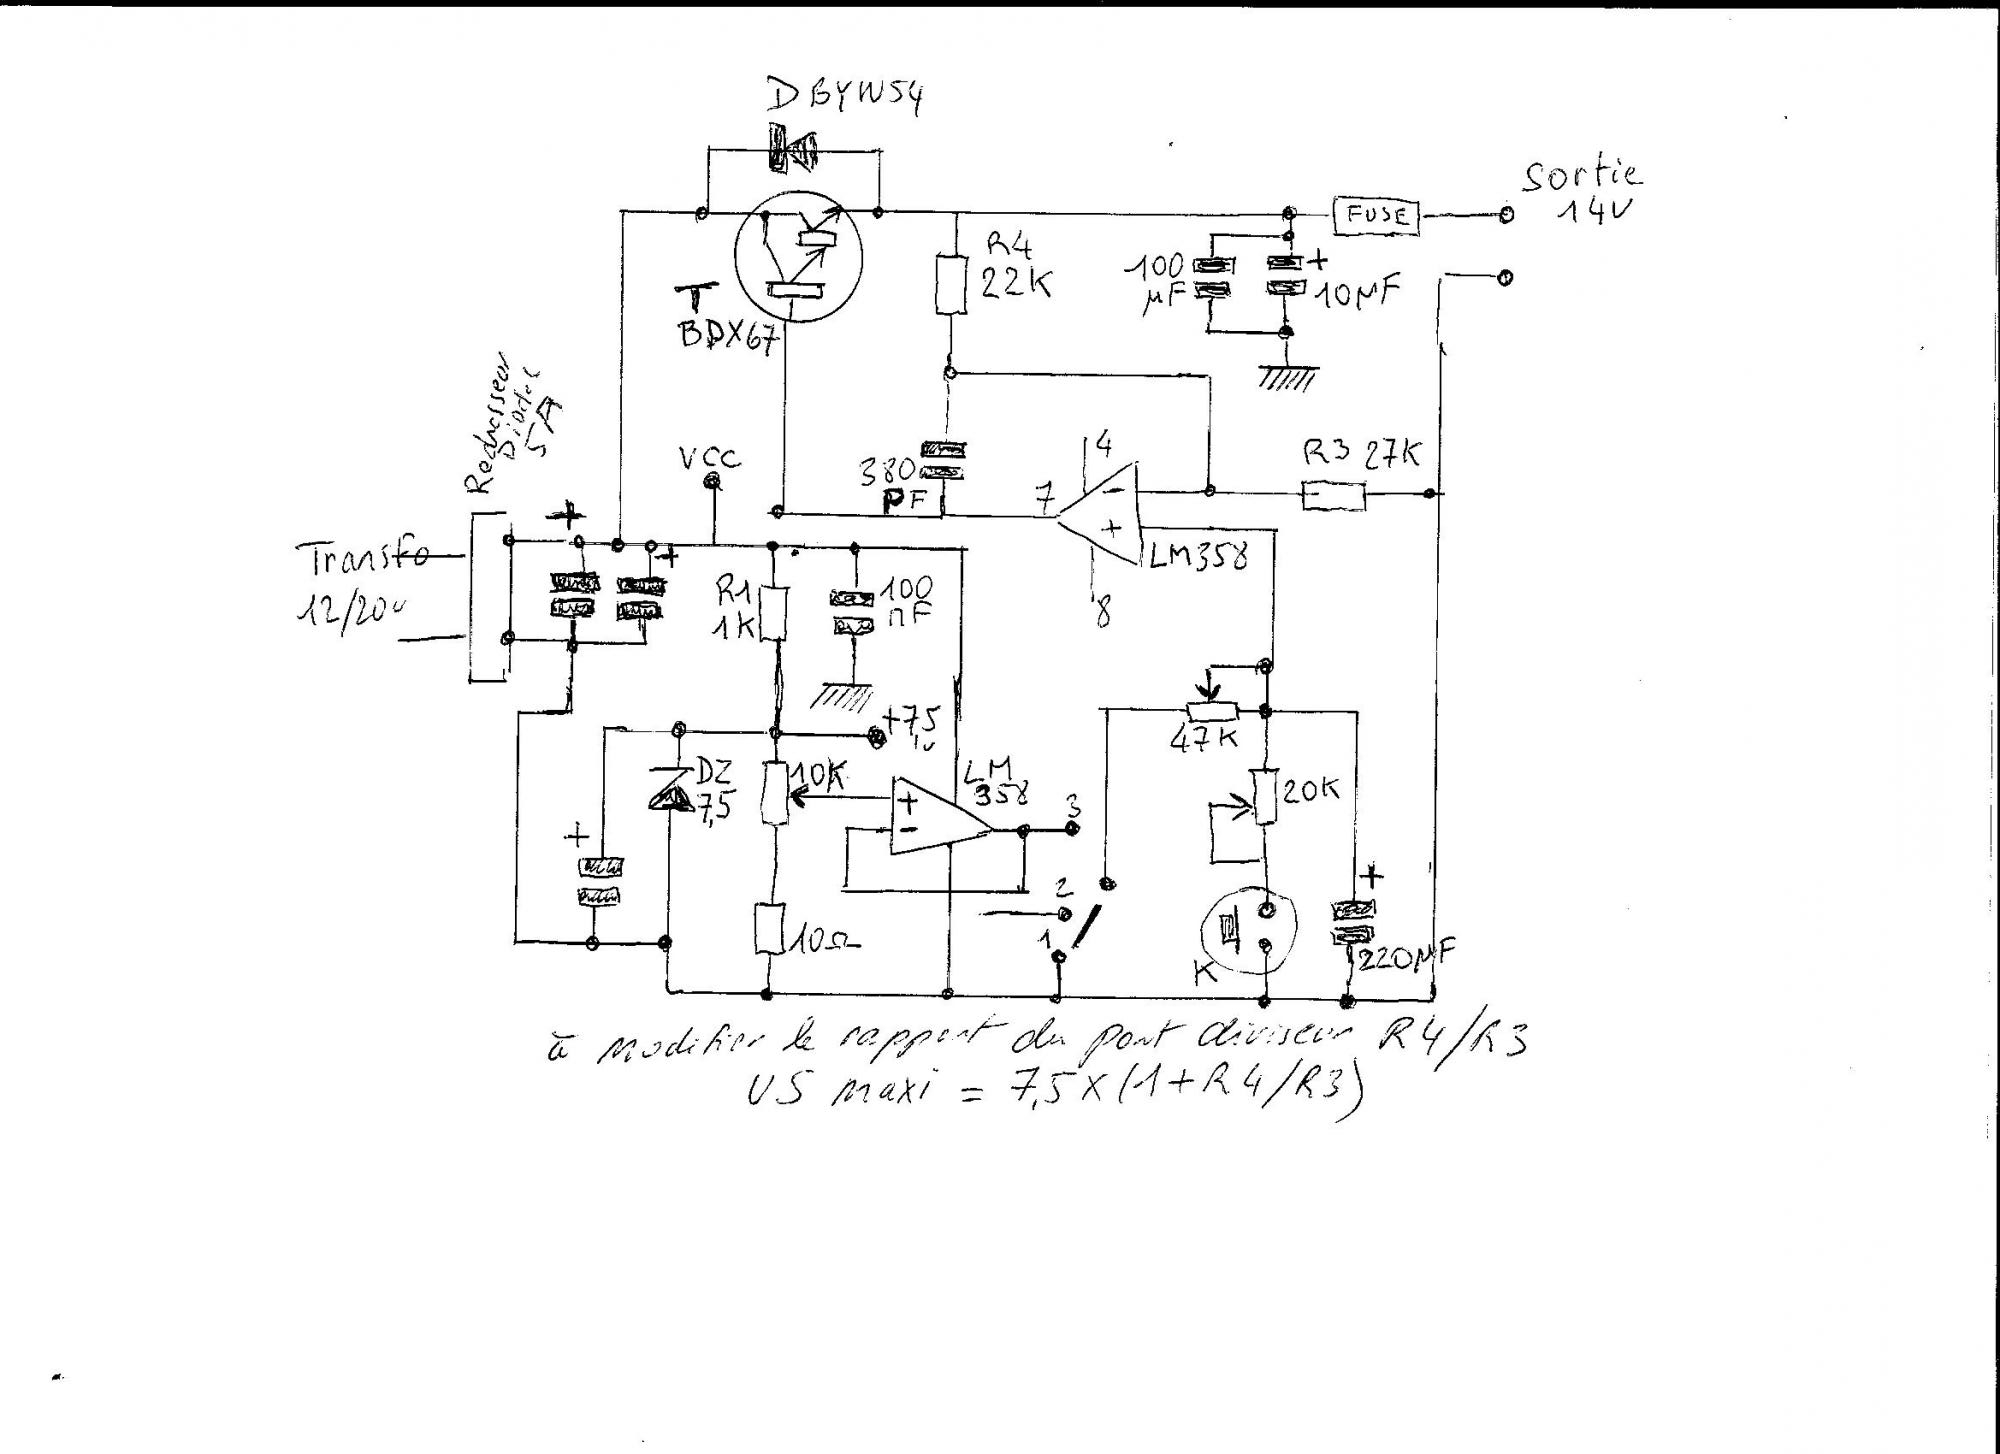 DBYW54
Sortie
14V
FUSE
R4
22K
100
µF
+
10µF
T
BDX67
Redresseur
Diodes
5A
VCC
380
PF
7
4
-
+
8
LM358
R3 27K
Transfo
12/20v
+
+
R1
1K
100
nF
+7,5
v
47K
DZ
7,5
10K
+
-
LM
358
3
20K
+
+
2
1
10Ω
K
220µF
à modifier le rapport du pont diviseur R4/R3
US maxi = 7,5X(1+R4/R3)